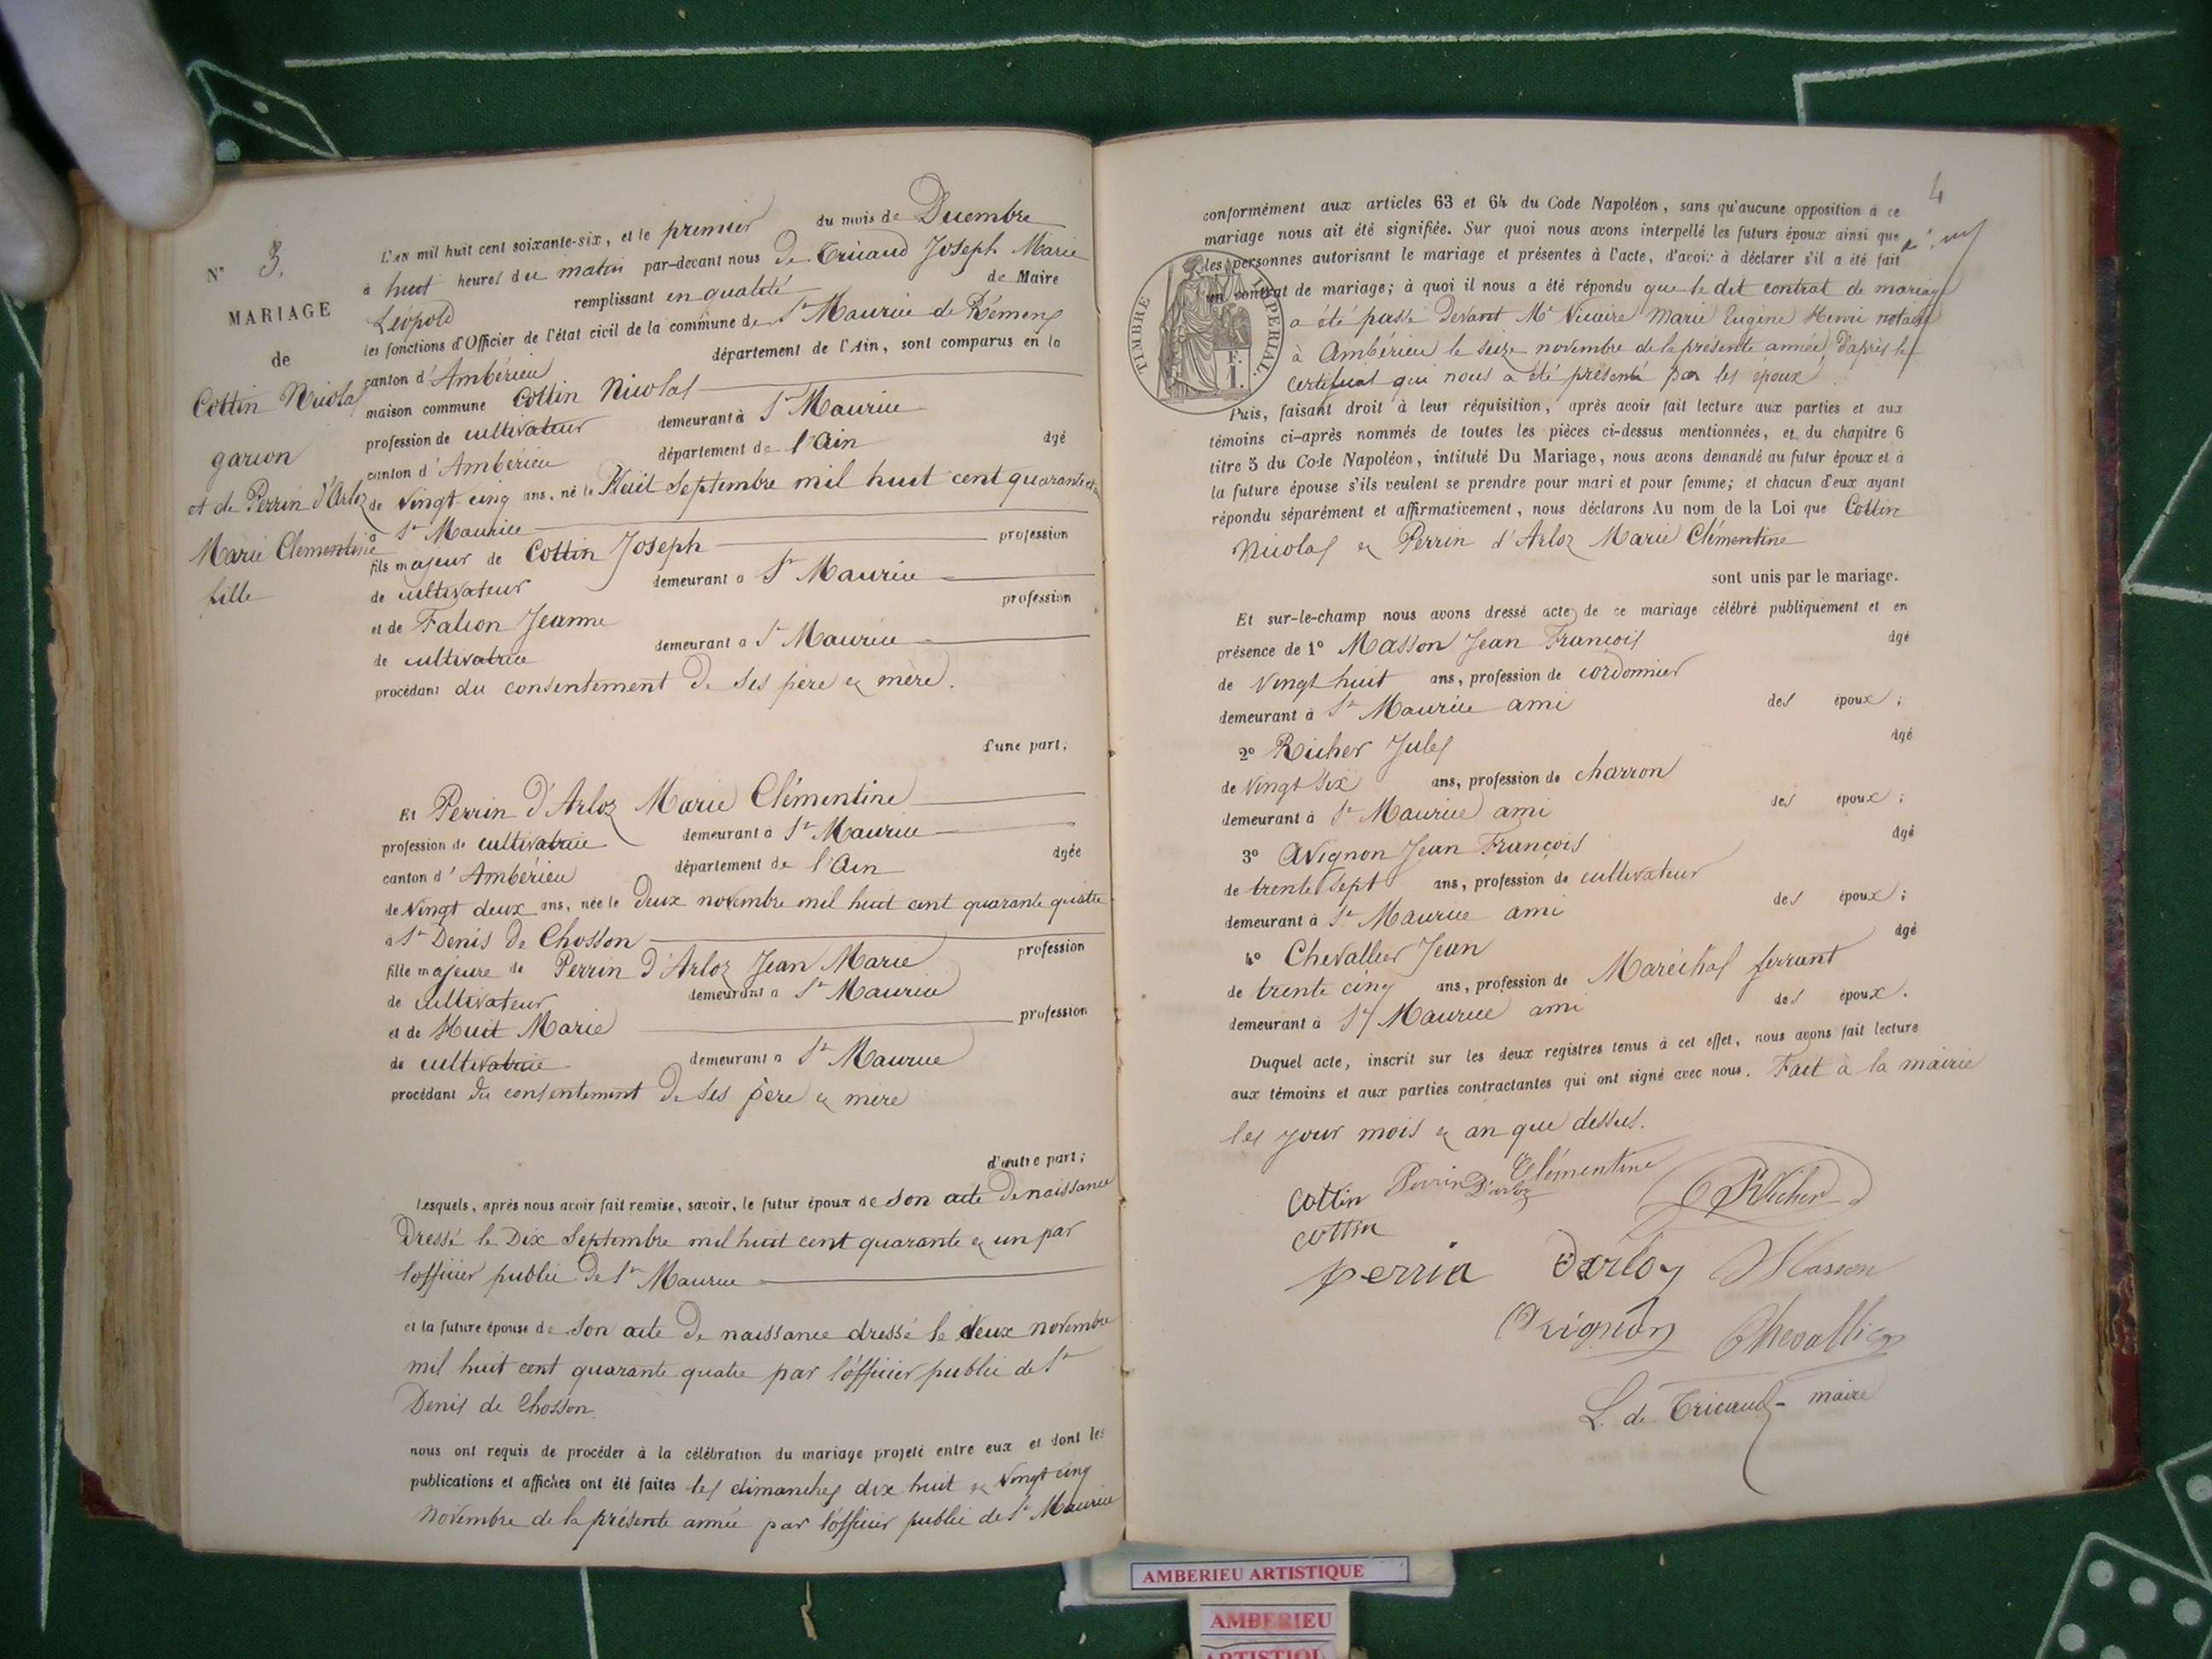 N° 3.
MARIAGE
de
Cottin Nicolas
garcon
et de Perrin d'Arloz
Marie Clementine
fille
L'an mil huit cent soixante-six, et le premier du mois de Decembre
à huit heures du matin par-devant nous De Tricaud Joseph Marie
Leopold remplissant en qualité de Maire
les fonctions d'Officier de l'état civil de la commune de St Maurice de Rémens
canton d'Ambérieu département de l'Ain, sont comparus en la
maison commune Cottin Nicolas
profession de cultivateur demeurant à St Maurice
canton d'Ambérieu département de l'Ain âgé
de Vingt cinq ans, né le Huit Septembre mil huit cent quarante et un
à St Maurice
fils majeur de Cottin Joseph profession
de cultivateur demeurant à St Maurice
et de Falcon Jeanne profession
de cultivatrice demeurant à St Maurice
procédant du consentement De Ses père et mère.
d'une part,
Et Perrin d'Arloz Marie Clémentine
profession de cultivatrice demeurant à St Maurice
canton d'Ambérieu département de l'Ain âgée
de Vingt deux ans, née le Deux novembre mil huit cent quarante quatre
à St Denis De Chosson
fille majeure de Perrin d'Arloz Jean Marie profession
de cultivateur demeurant à St Maurice
et de Huit Marie profession
de cultivatrice demeurant à St Maurice
procédant du consentement De Ses père et mère
d'autre part;
Lesquels, après nous avoir fait remise, savoir, le futur époux de Son acte De naissance
Dressé le Dix Septembre mil huit cent quarante et un par
l'officier public De St Maurice
et la future épouse de Son acte De naissance dressé le deux novembre
mil huit cent quarante quatre par l'officier public de St
Denis de Chosson.
nous ont requis de procéder à la célébration du mariage projeté entre eux et dont les
publications et affiches ont été faites les dimanches dix huit et Vingt cinq
Novembre de la présente année par l'officier public de St Maurice
4
conformément aux articles 63 et 64 du Code Napoléon, sans qu'aucune opposition à ce
mariage nous ait été signifiée. Sur quoi nous avons interpellé les futurs époux ainsi que
les personnes autorisant le mariage et présentes à l'acte, d'avoir à déclarer s'il a été fait
un contrat de mariage; à quoi il nous a été répondu que le dit contrat de mariage
a été passé Devant Me Vicaire Marie Eugène Henri notaire
à Ambérieu le seize novembre de la présente année, d'après le
certificat qui nous a été présenté par les époux
TIMBRE IMPERIAL.
F.
1.
Puis, faisant droit à leur réquisition, après avoir fait lecture aux parties et aux
témoins ci-après nommés de toutes les pièces ci-dessus mentionnées, et du chapitre 6
titre 5 du Code Napoléon, intitulé Du Mariage, nous avons demandé au futur époux et à
la future épouse s'ils veulent se prendre pour mari et pour femme; et chacun d'eux ayant
répondu séparément et affirmativement, nous déclarons Au nom de la Loi que Cottin
Nicolas et Perrin d'Arloz Marie Clémentine
sont unis par le mariage.
Et sur-le-champ nous avons dressé acte de ce mariage célébré publiquement et en
présence de 1° Masson Jean François âgé
de Vingt huit ans, profession de cordonnier
demeurant à St Maurice ami des époux;
2° Richer Jules âgé
de Vingt Six ans, profession de charron
demeurant à St Maurice ami des époux;
3° Avignon Jean François âgé
de trente Sept ans, profession de cultivateur
demeurant à St Maurice ami des époux;
4° Chevallier Jean âgé
de trente cinq ans, profession de Maréchal ferrant
demeurant à St Maurice ami des époux.
Duquel acte, inscrit sur les deux registres tenus à cet effet, nous avons fait lecture
aux témoins et aux parties contractantes qui ont signé avec nous. Fait à la mairie
les jour mois et an que dessus.
Cottin Perrin D'arloz Clémentine Richer
cottin
perrin Darloz Masson
Avignon Chevallier
L. de Tricaud - maire
AMBERIEU ARTISTIQUE
AMBERIEU
ARTISTIQU